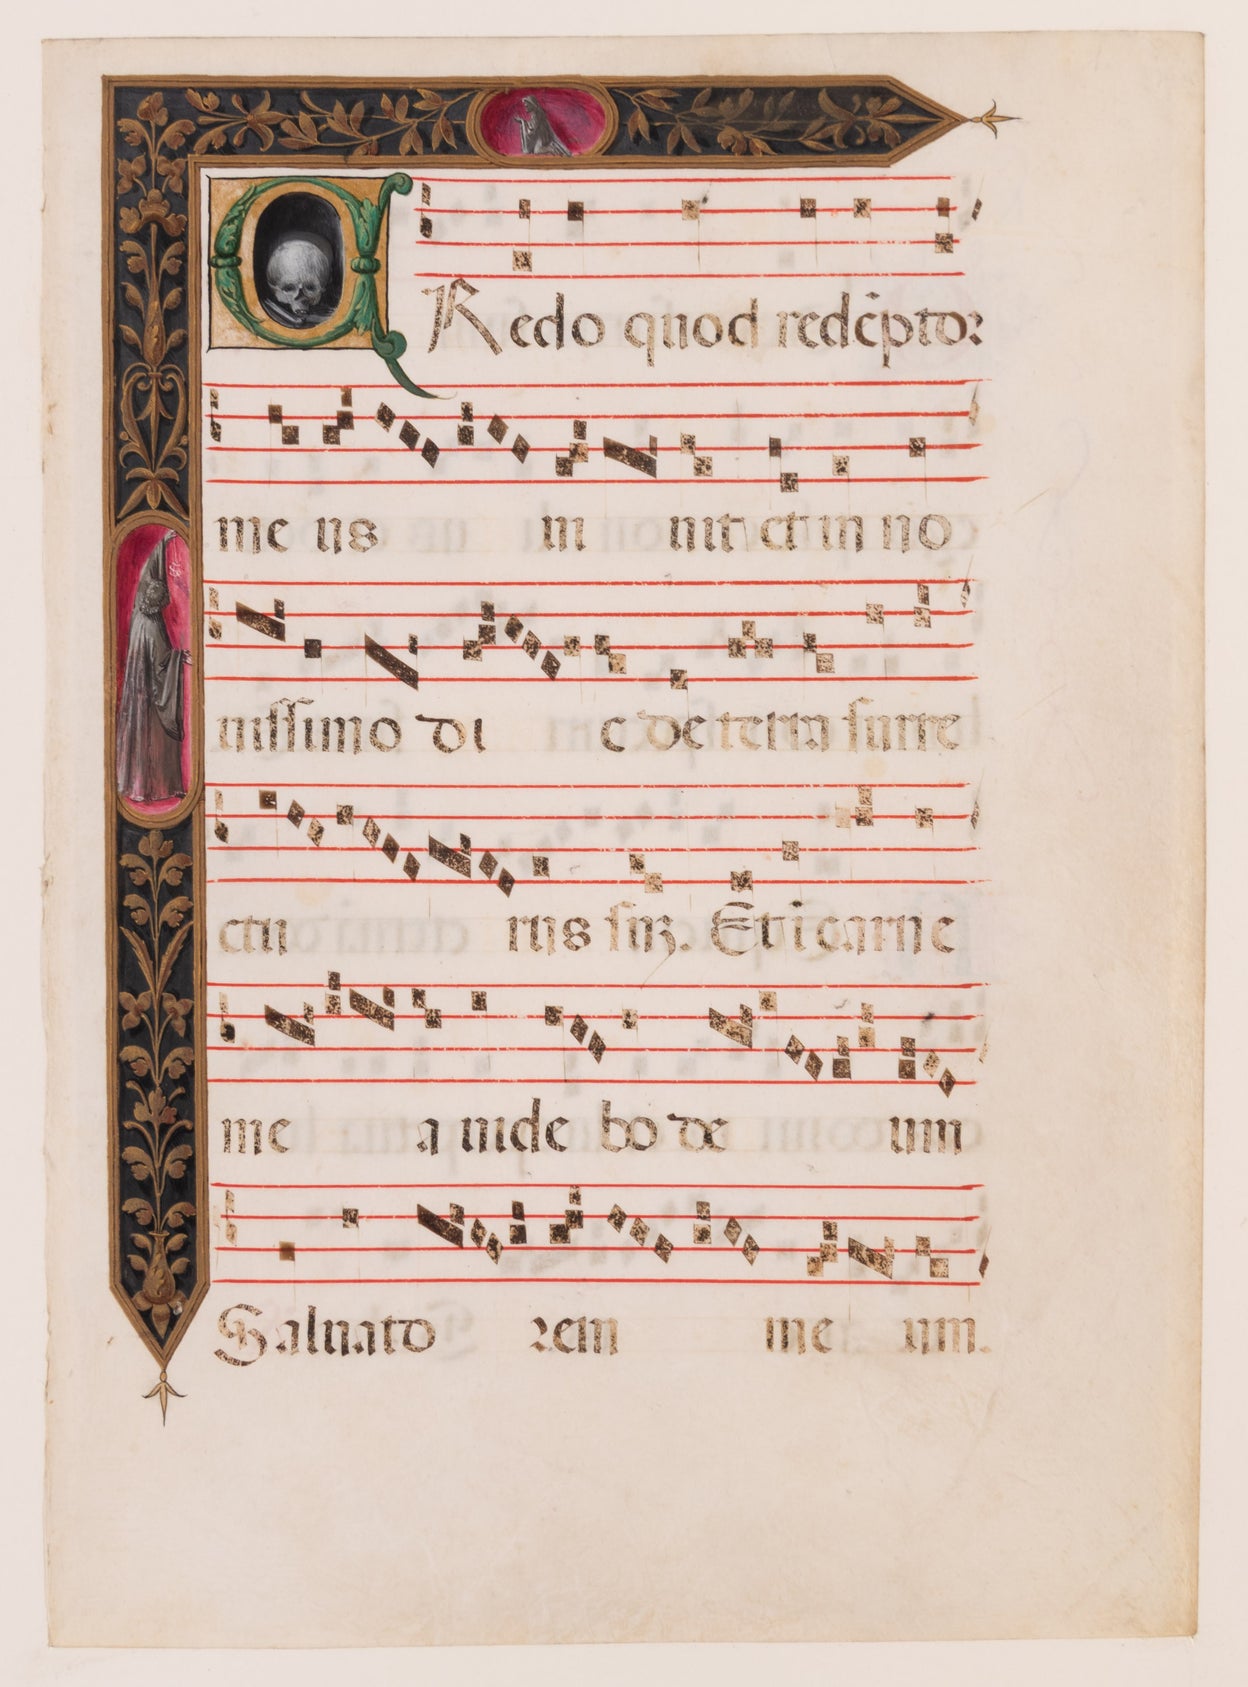 CRedo quod redēptor
me us ui uit et in no
uissimo di e de terra surre
ctu rus suꝫ. Et i carne
me a uide bo de um
Saluato rem me um.